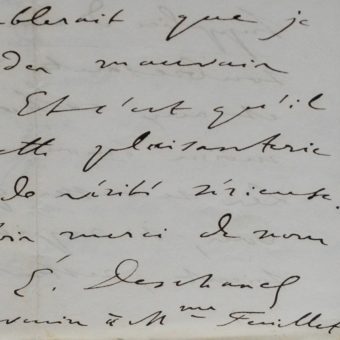 blerait que je
den mauvain
Et c'est qu'il
ette plaisanterie
de vérité sérieuse.
merci de nom
É. Deschanel
venir à Mme Feuillet